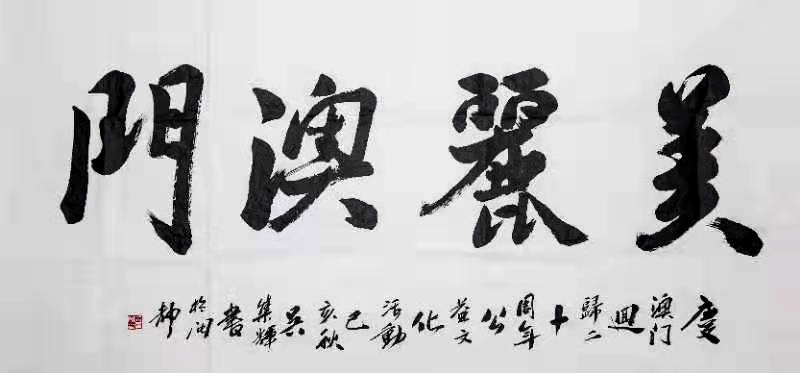 美麗澳門
慶澳门迴歸二十周年公益文化活動己亥秋吴集輝書於润静